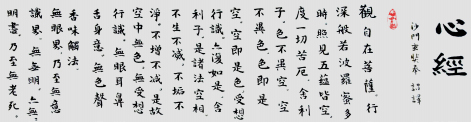 心經
沙門玄奘奉 詔譯
觀自在菩薩。行
深般若波羅蜜多
時。照見五蘊皆空。
度一切苦厄。舍利
子。色不異空。空
不異色。色即是
空。空即是色。受想
行識。亦復如是。舍
利子。是諸法空相。
不生不滅。不垢不
淨。不增不減。是故
空中無色。無受想
行識。無眼耳鼻
舌身意。無色聲
香味觸法。
無眼界。乃至無意
識界。無無明。亦無
明盡。乃至無老死。